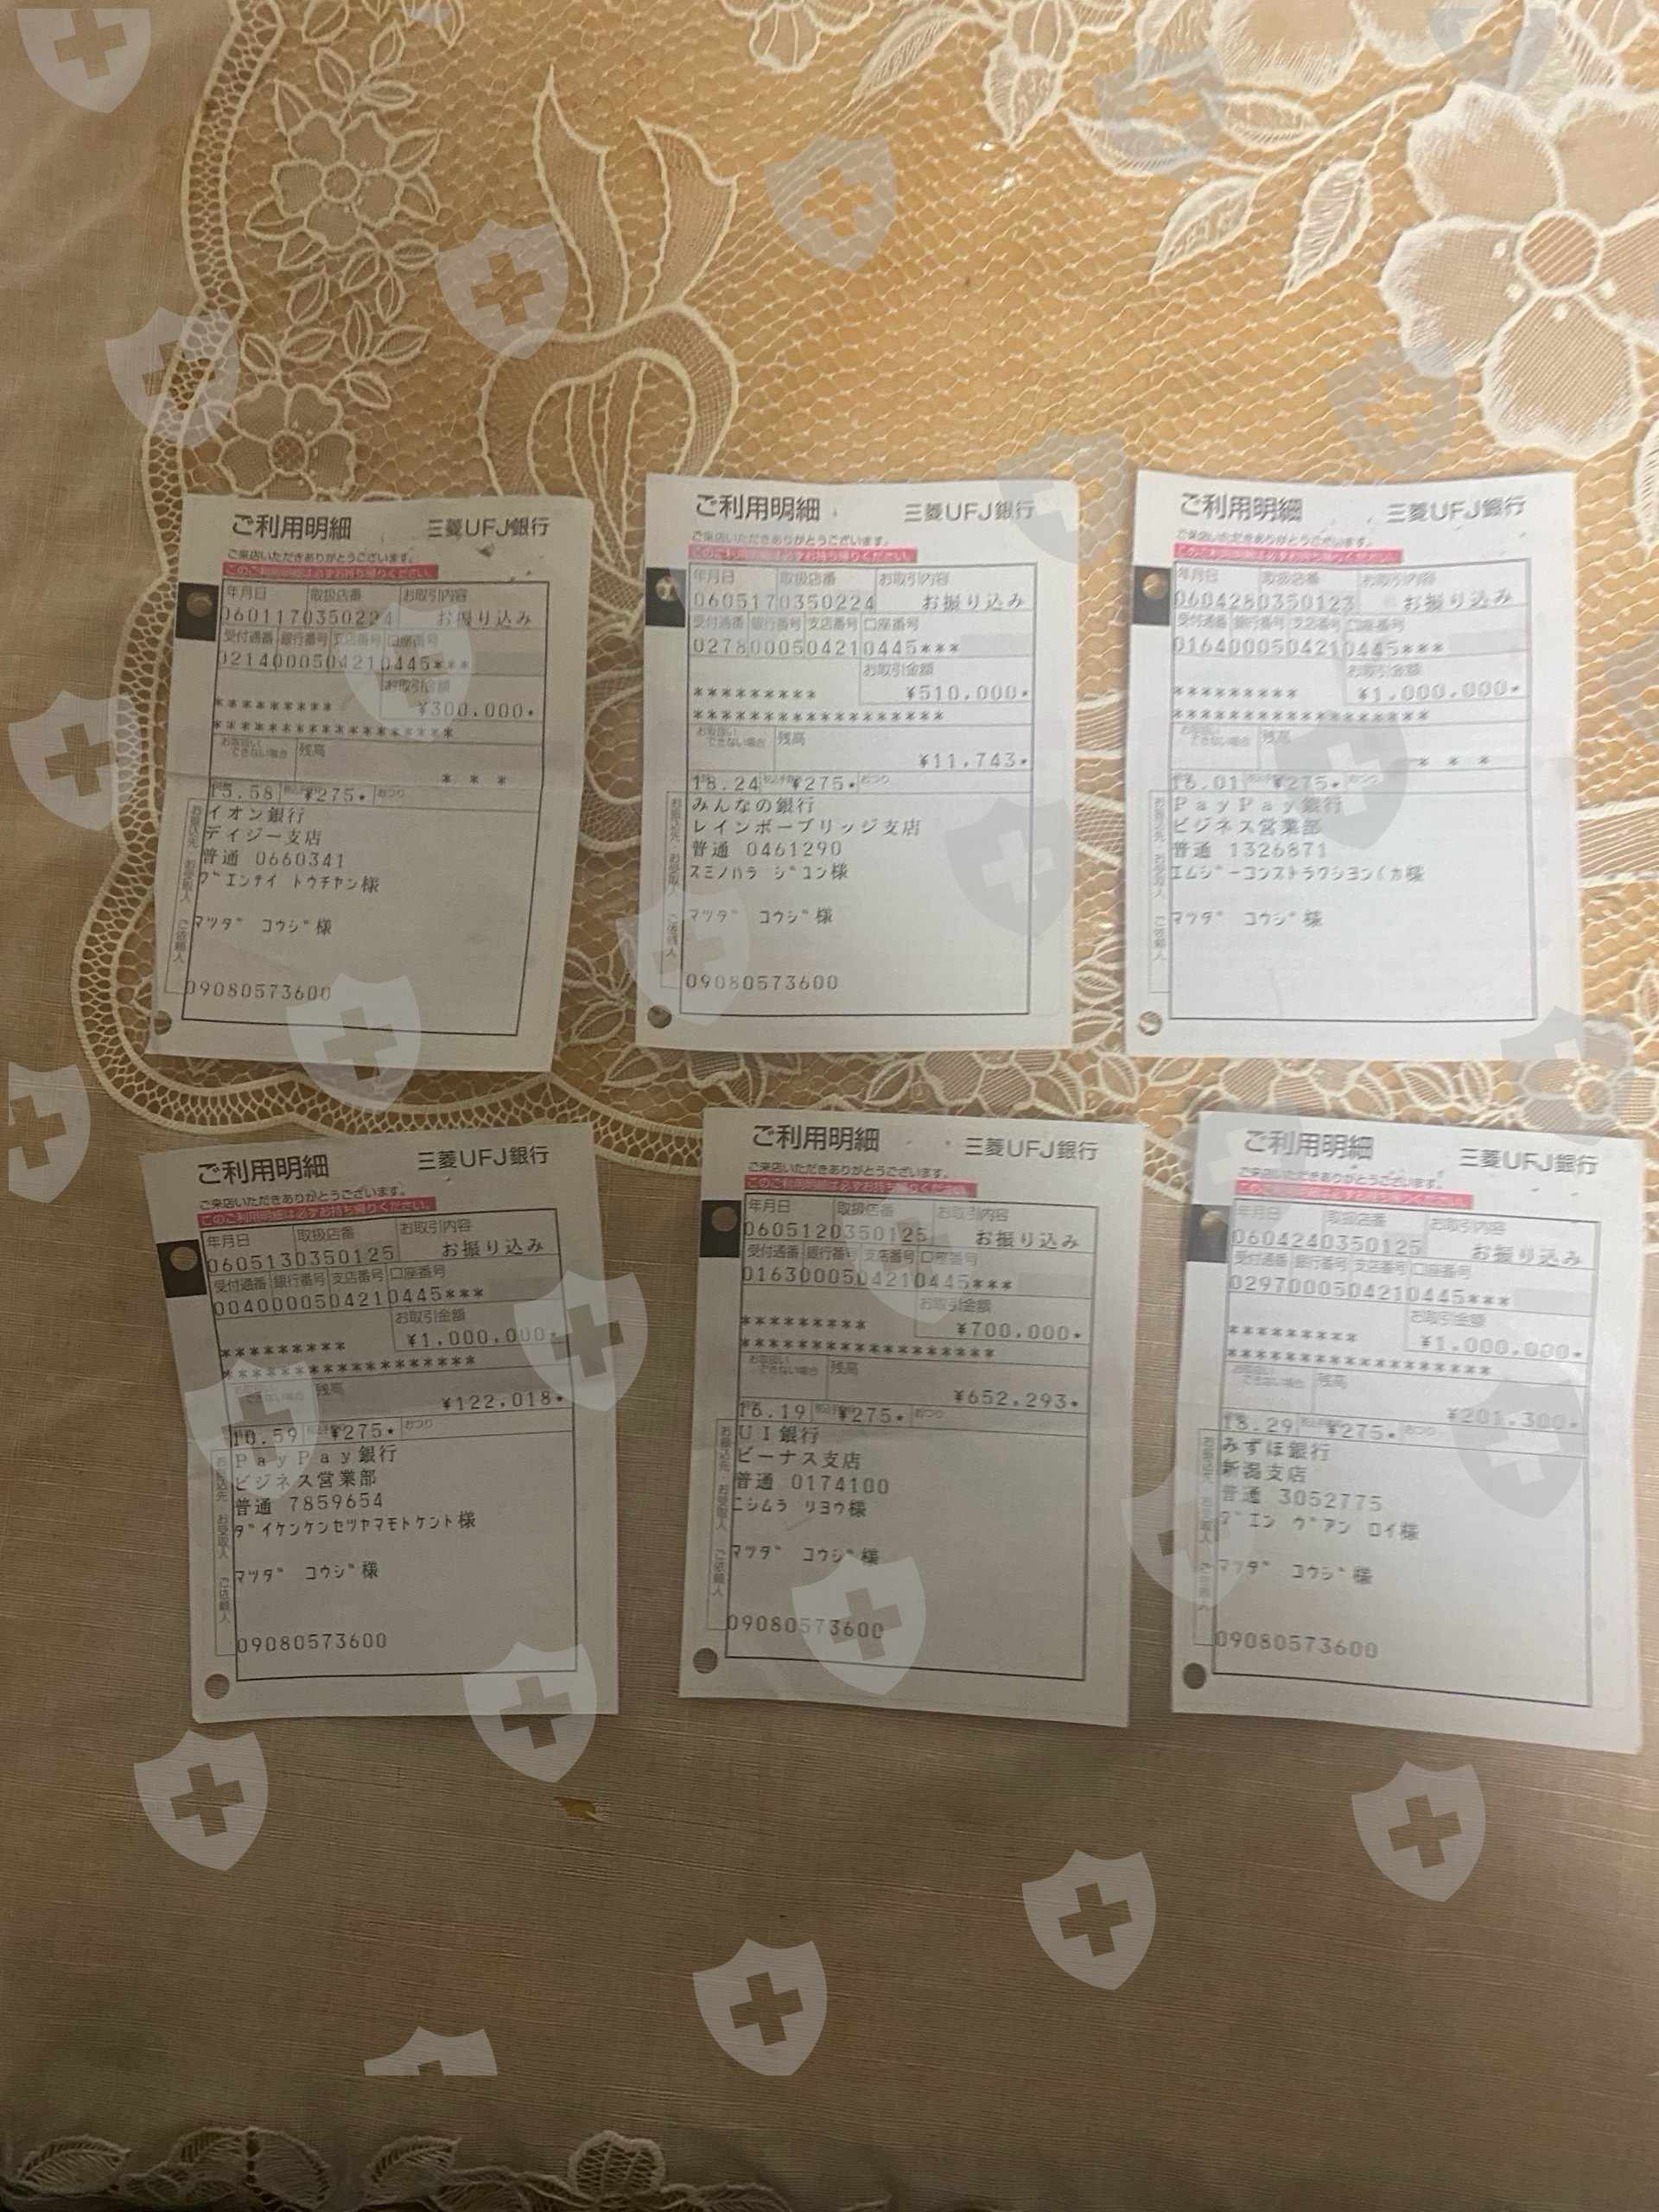 ご利用明細 三菱UFJ銀行
ご来店いただきありがとうございます。
このご利用明細は必ずお持ち帰りください。
年月日 取扱店番 お取引内容
0601170350224 お振り込み
受付通番 銀行番号 支店番号 口座番号
0214000504210445***
お取引金額
********* ¥300,000*
******************
お取扱いできない場合 残高
* * *
15.58 ¥275* おつり
お振込先・お受取人
イオン銀行
デイジー支店
普通 0660341
グエンテイ トウチヤン様
ご依頼人
マツダ コウジ様
09080573600
ご利用明細 三菱UFJ銀行
ご来店いただきありがとうございます。
このご利用明細は必ずお持ち帰りください。
年月日 取扱店番 お取引内容
0605170350224 お振り込み
受付通番 銀行番号 支店番号 口座番号
0278000504210445***
お取引金額
********* ¥510,000*
******************
お取扱いできない場合 残高
¥11,743*
18.24 ¥275* おつり
お振込先・お受取人
みんなの銀行
レインボーブリッジ支店
普通 0461290
スミノハラ ジユン様
ご依頼人
マツダ コウジ様
09080573600
ご利用明細 三菱UFJ銀行
ご来店いただきありがとうございます。
このご利用明細は必ずお持ち帰りください。
年月日 取扱店番 お取引内容
0604280350123 お振り込み
受付通番 銀行番号 支店番号 口座番号
0164000504210445***
お取引金額
********* ¥1,000,000*
******************
お取扱いできない場合 残高
* * *
16.01 ¥275* おつり
お振込先・お受取人
PayPay銀行
ビジネス営業部
普通 1326871
エムジーコンストラクシヨン(カ様
ご依頼人
マツダ コウジ様
ご利用明細 三菱UFJ銀行
ご来店いただきありがとうございます。
このご利用明細は必ずお持ち帰りください。
年月日 取扱店番 お取引内容
0605130350125 お振り込み
受付通番 銀行番号 支店番号 口座番号
0040000504210445***
お取引金額
********* ¥1,000,000*
******************
残高
¥122,018*
10.59 ¥275* おつり
お振込先・お受取人
PayPay銀行
ビジネス営業部
普通 7859654
ダイケンケンセツヤマモトケント様
ご依頼人
マツダ コウジ様
09080573600
ご利用明細 三菱UFJ銀行
ご来店いただきありがとうございます。
このご利用明細は必ずお持ち帰りください。
年月日 取扱店番 お取引内容
0605120350125 お振り込み
受付通番 銀行番号 支店番号 口座番号
0163000504210445***
お取引金額
********* ¥700,000*
******************
お取扱いできない場合 残高
¥652,293*
16.19 ¥275* おつり
お振込先・お受取人
UI銀行
ビーナス支店
普通 0174100
ニシムラ リヨウ様
ご依頼人
マツダ コウジ様
09080573600
ご利用明細 三菱UFJ銀行
ご来店いただきありがとうございます。
このご利用明細は必ずお持ち帰りください。
年月日 取扱店番 お取引内容
0604240350125 お振り込み
受付通番 銀行番号 支店番号 口座番号
0297000504210445***
お取引金額
********* ¥1,000,000*
******************
お取扱いできない場合 残高
¥201,300*
18.29 ¥275* おつり
お振込先・お受取人
みずほ銀行
新潟支店
普通 3052775
グエン ヴアン ロイ様
ご依頼人
マツダ コウジ様
09080573600